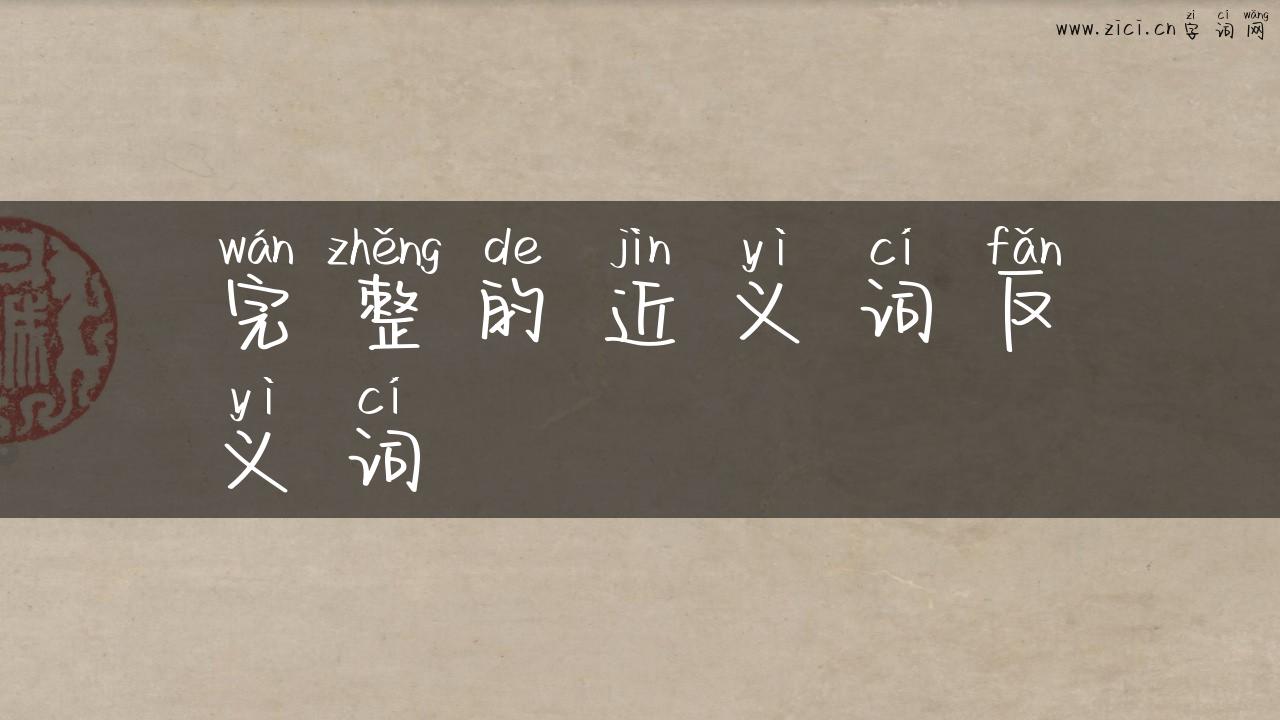 zì cí wǎng
www.zici.cn 字词网
wán zhěng de jìn yì cí fǎn
完整的近义词反
yì cí
义词